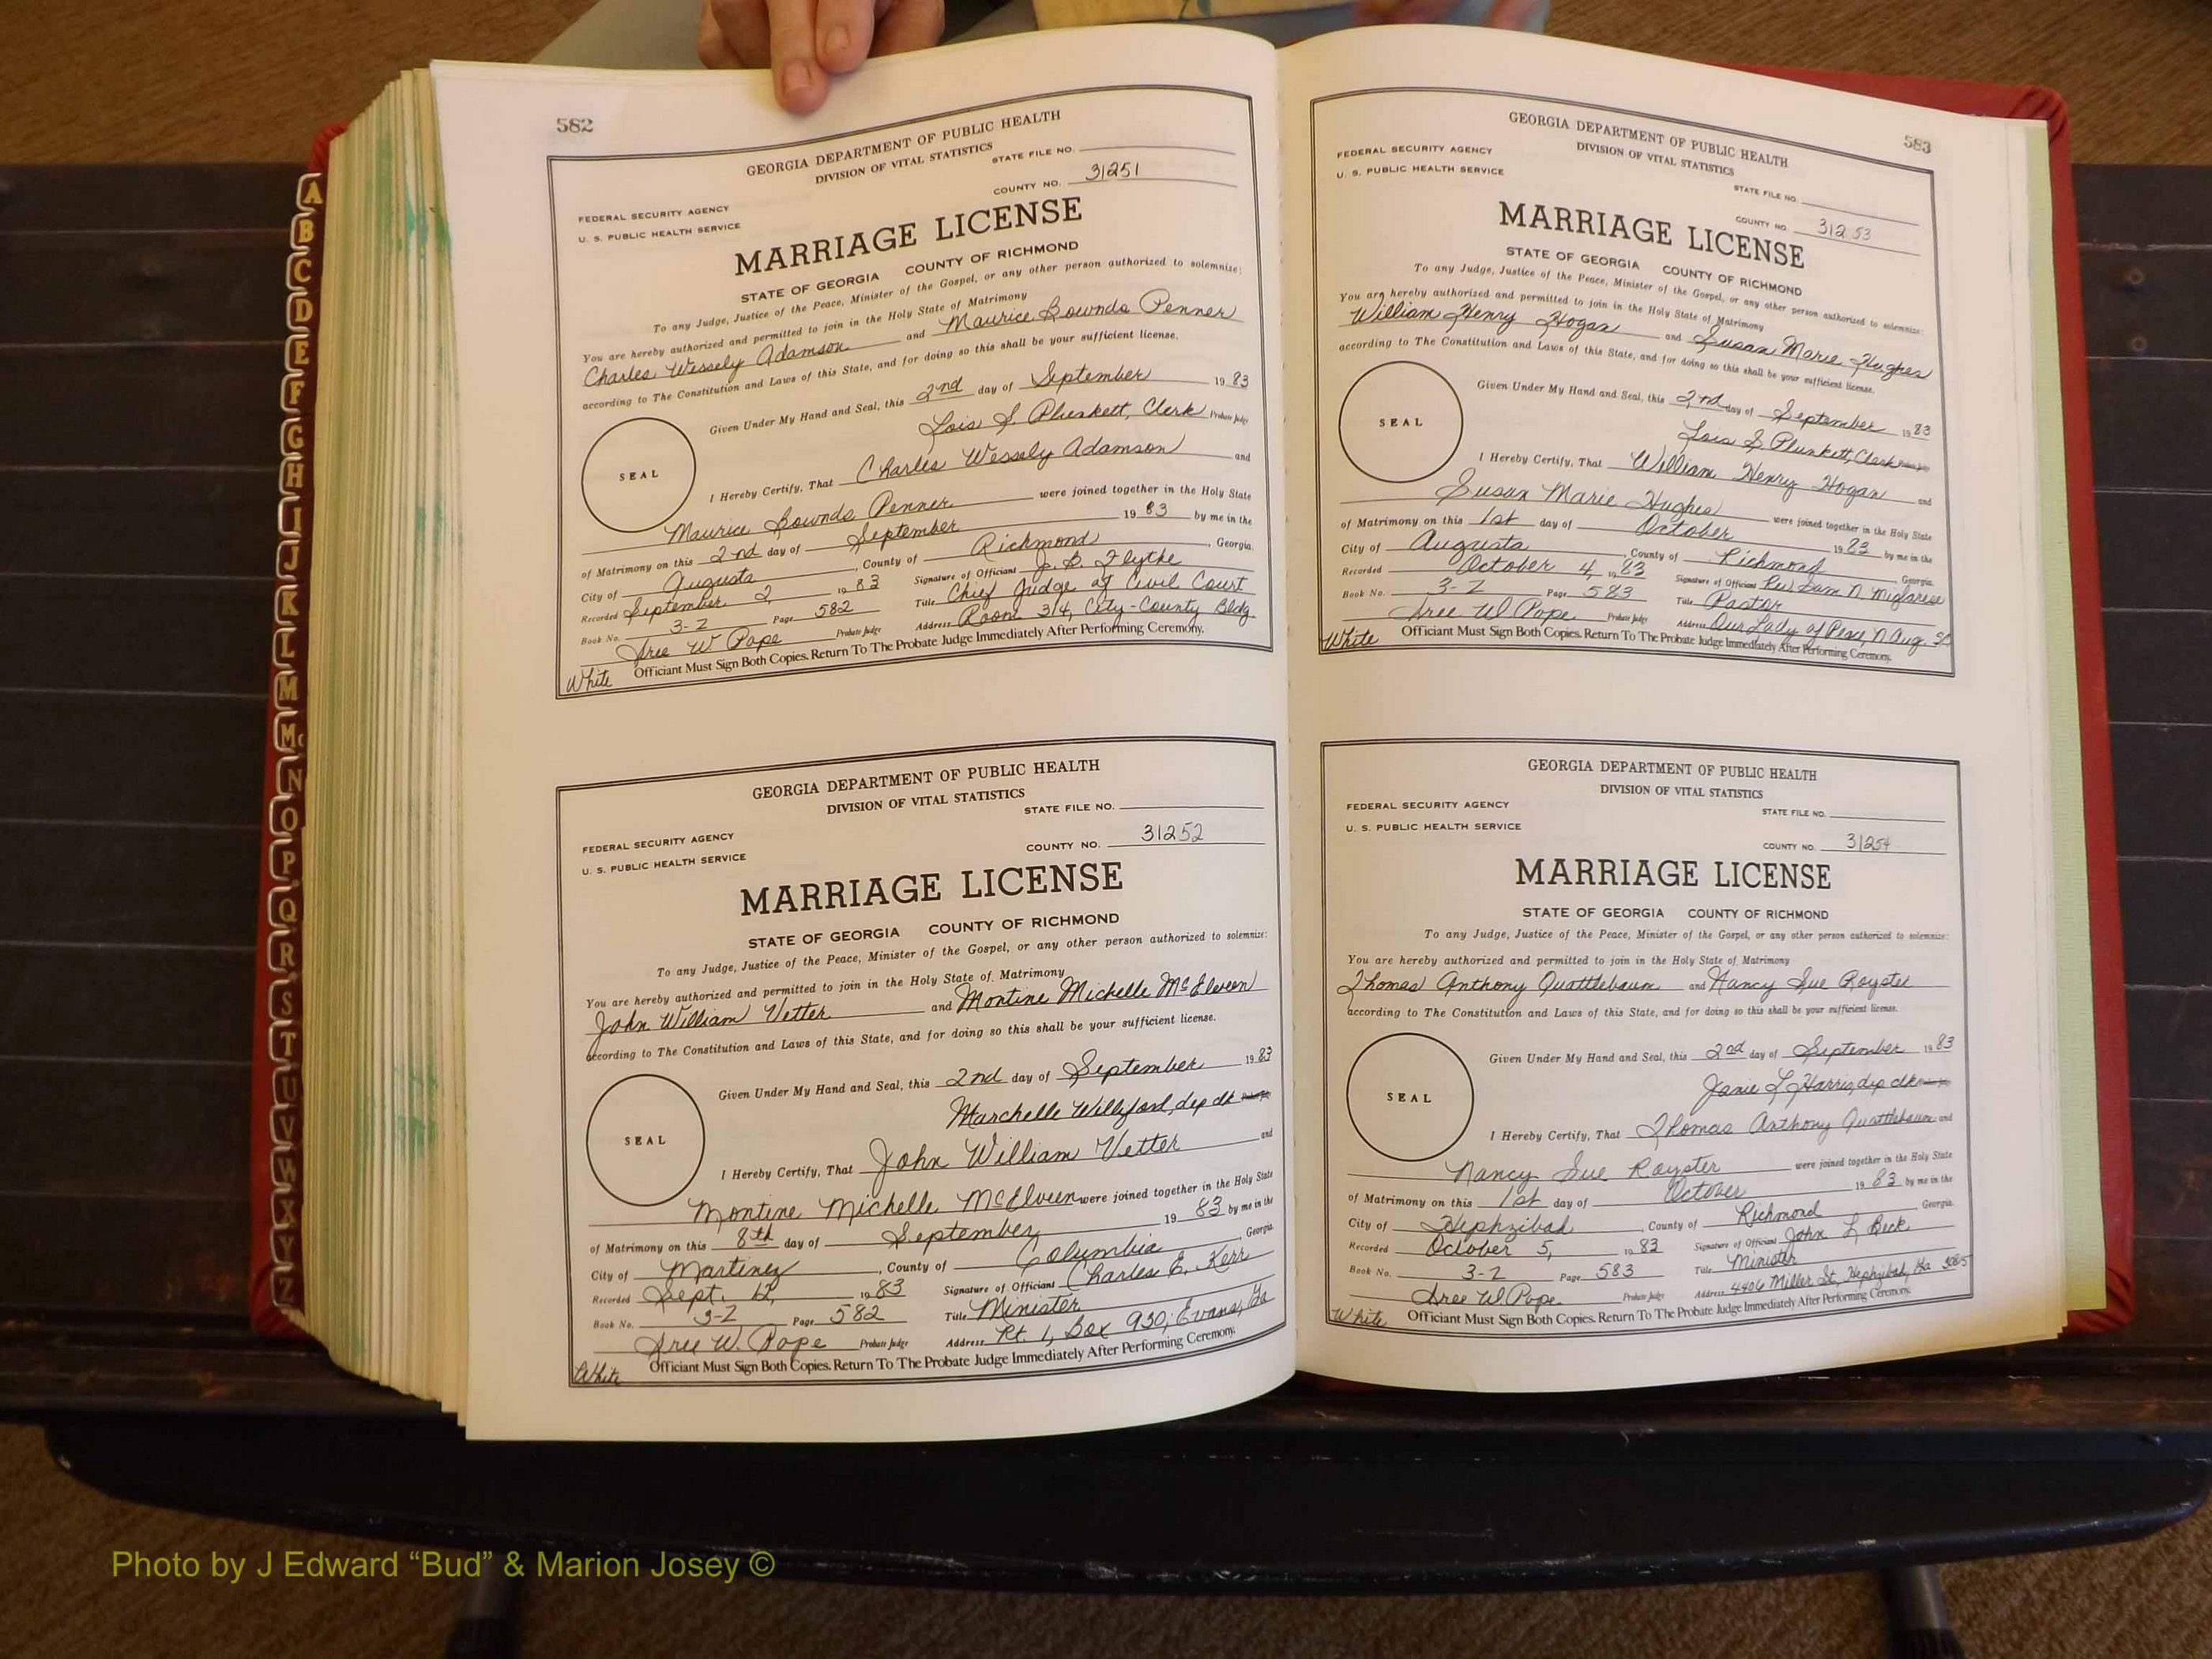 582
GEORGIA DEPARTMENT OF PUBLIC HEALTH
DIVISION OF VITAL STATISTICS
STATE FILE NO.
COUNTY NO. 31251
FEDERAL SECURITY AGENCY
U. S. PUBLIC HEALTH SERVICE
MARRIAGE LICENSE
STATE OF GEORGIA COUNTY OF RICHMOND
To any Judge, Justice of the Peace, Minister of the Gospel, or any other person authorized to solemnize:
You are hereby authorized and permitted to join in the Holy State of Matrimony
Charles Wessely Adamson and Maurice Bownds Penner
according to The Constitution and Laws of this State, and for doing so this shall be your sufficient license.
Given Under My Hand and Seal, this 2nd day of September 1983
Lois S. Plunkett, Clerk Probate Judge
SEAL
I Hereby Certify, That Charles Wessely Adamson and
Maurice Bownds Penner were joined together in the Holy State
of Matrimony on this 2nd day of September 1983 by me in the
City of Augusta, County of Richmond, Georgia.
Recorded September 2, 1983 Signature of Officiant J. B. Flythe
Book No. 3-Z Page 582 Title Chief Judge of Civil Court
Free W. Pope Probate Judge Address Room 314, City-County Bldg
White Officiant Must Sign Both Copies. Return To The Probate Judge Immediately After Performing Ceremony.
GEORGIA DEPARTMENT OF PUBLIC HEALTH
DIVISION OF VITAL STATISTICS
STATE FILE NO.
FEDERAL SECURITY AGENCY
COUNTY NO. 31252
U. S. PUBLIC HEALTH SERVICE
MARRIAGE LICENSE
STATE OF GEORGIA COUNTY OF RICHMOND
To any Judge, Justice of the Peace, Minister of the Gospel, or any other person authorized to solemnize:
You are hereby authorized and permitted to join in the Holy State of Matrimony
John William Vetter and Montine Michelle McElveen
according to The Constitution and Laws of this State, and for doing so this shall be your sufficient license.
Given Under My Hand and Seal, this 2nd day of September 1983
Marchelle Williford, dep clk
SEAL
I Hereby Certify, That John William Vetter and
Montine Michelle McElveen were joined together in the Holy State
of Matrimony on this 8th day of September 1983 by me in the
City of Martinez, County of Columbia Georgia
Recorded Sept. 12, 1983 Signature of Officiant Charles E. Kerr
Book No. 3-Z Page 582 Title Minister
Free W. Pope Probate Judge Address Rt. 1, Box 930, Evans, Ga
White Officiant Must Sign Both Copies. Return To The Probate Judge Immediately After Performing Ceremony.
583
GEORGIA DEPARTMENT OF PUBLIC HEALTH
DIVISION OF VITAL STATISTICS
FEDERAL SECURITY AGENCY
U. S. PUBLIC HEALTH SERVICE
STATE FILE NO.
COUNTY NO. 31253
MARRIAGE LICENSE
STATE OF GEORGIA COUNTY OF RICHMOND
To any Judge, Justice of the Peace, Minister of the Gospel, or any other person authorized to solemnize:
You are hereby authorized and permitted to join in the Holy State of Matrimony
William Henry Hogan and Susan Marie Hughes
according to The Constitution and Laws of this State, and for doing so this shall be your sufficient license.
Given Under My Hand and Seal, this 2nd day of September 1983
Lois S. Plunkett, Clerk
SEAL
I Hereby Certify, That William Henry Hogan and
Susan Marie Hughes were joined together in the Holy State
of Matrimony on this 1st day of October 1983 by me in the
City of Augusta, County of Richmond Georgia.
Recorded October 4, 1983 Signature of Officiant Rev. Sam N.
Book No. 3-Z Page 583 Title Pastor
Free W Pope Probate Judge Address Our Lady of Peace, N Aug. SC
White Officiant Must Sign Both Copies. Return To The Probate Judge Immediately After Performing Ceremony.
GEORGIA DEPARTMENT OF PUBLIC HEALTH
DIVISION OF VITAL STATISTICS
FEDERAL SECURITY AGENCY
STATE FILE NO.
U. S. PUBLIC HEALTH SERVICE
COUNTY NO. 31254
MARRIAGE LICENSE
STATE OF GEORGIA COUNTY OF RICHMOND
To any Judge, Justice of the Peace, Minister of the Gospel, or any other person authorized to solemnize:
You are hereby authorized and permitted to join in the Holy State of Matrimony
Thomas Anthony Quattlebaum and Nancy Sue Royster
according to The Constitution and Laws of this State, and for doing so this shall be your sufficient license.
Given Under My Hand and Seal, this 2nd day of September 1983
Janie L. Harris, dep clk
SEAL
I Hereby Certify, That Thomas Anthony Quattlebaum and
Nancy Sue Royster were joined together in the Holy State
of Matrimony on this 1st day of October 1983 by me in the
City of Hephzibah, County of Richmond Georgia.
Recorded October 5, 1983 Signature of Officiant John L Beck
Book No. 3-Z Page 583 Title Minister
Free W Pope Probate Judge Address 4406 Miller St, Hephzibah, Ga
White Officiant Must Sign Both Copies. Return To The Probate Judge Immediately After Performing Ceremony.
A
B
C
D
E
F
G
H
I
J
K
L
M
Mc
N
O
P
Q
R
S
T
U
V
W
X
Y
Z
Photo by J Edward “Bud” & Marion Josey ©